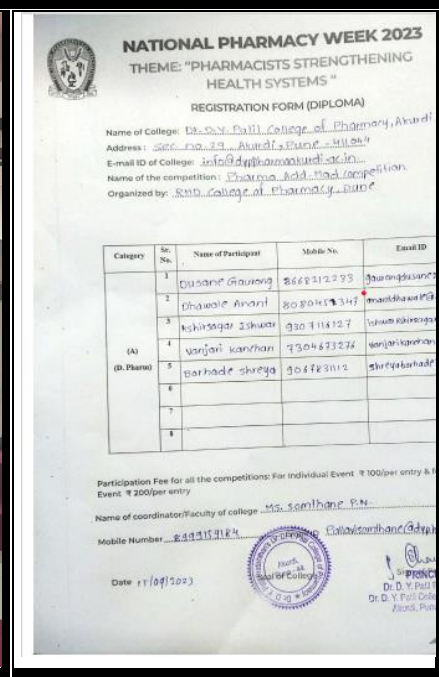 NATIONAL PHARMACY WEEK 2023
THEME: "PHARMACISTS STRENGTHENING
HEALTH SYSTEMS "
REGISTRATION FORM (DIPLOMA)
Name of College: Dr. D. Y. Patil College of Pharmacy, Akurdi
Address: Sec. no. 29, Akurdi, Pune - 411044
E-mail ID of College: info@dyppharmaakurdi.ac.in
Name of the competition: Pharma Add-Mad competition
Organized by: RMD College of Pharmacy, Pune
Category Sr. No. Name of Participant Mobile No. Email ID
(A) (D. Pharm)
1 Dusane Gaurang 8668212233 gaurangdusane
2 Dhawale Anant anantdhawale@
3 Kshirsagar Ishwar 9307116127 ishwarkshirsagar
4 Vanjari Kanchan 7304673276 vanjarikanchan
5 Borhade Shreya 9067831112 shreyaborhade
6
7
8
Participation Fee for all the competitions: For Individual Event ₹ 100/per entry &
Event ₹ 200/per entry
Name of coordinator/Faculty of college Ms. Somthane P.N.
Mobile Number 8999159184 Pallavisomthane@dyph
Date 11/09/2023 Seal of College
PRINC
Dr. D. Y. Patil
Dr. D. Y. Patil Colle
Akurdi, Pun